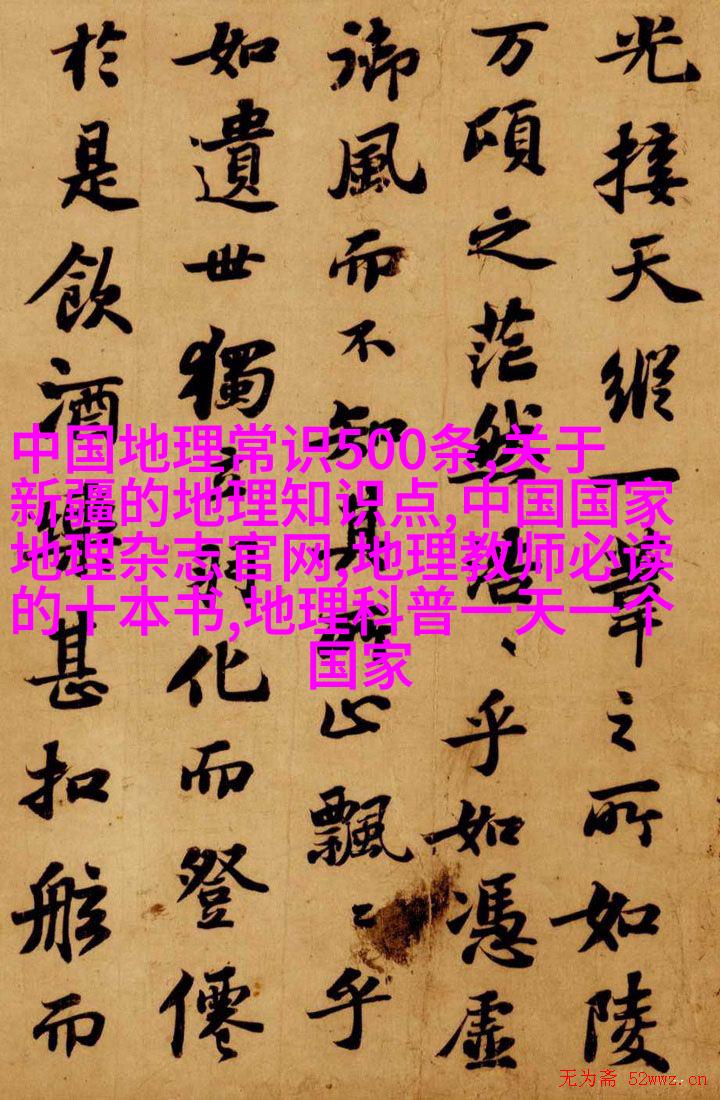 光接天縱一葦之所如陵
万頃之茫然浩〻乎如憑虛
御風而不知其所止飄〻乎
如遺世獨立羽化而登僊
於是飲酒樂甚扣舷而
中国地理常识500条,关于
新疆的地理知识点,中国国家
地理杂志官网,地理教师必读
的十本书,地理科普一天一个
国家
无为斋 52wwz.cn